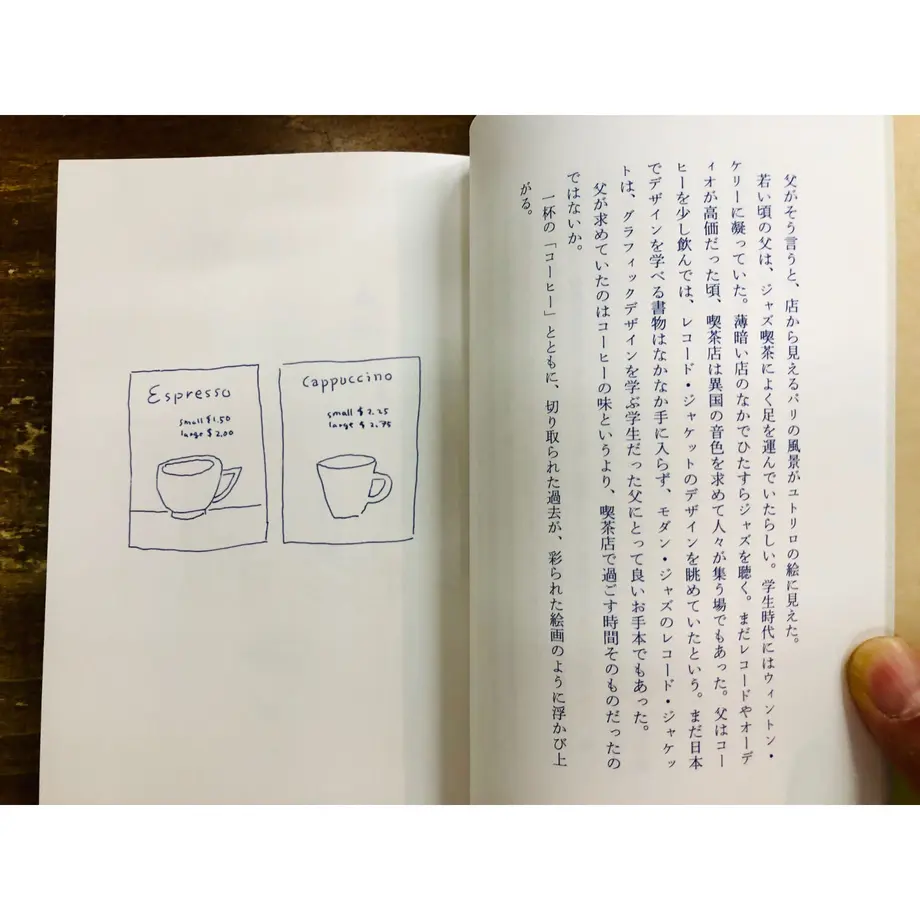 父がそう言うと、店から見えるパリの風景がユトリロの絵に見えた。
若い頃の父は、ジャズ喫茶によく足を運んでいたらしい。学生時代にはウィントン・
ケリーに凝っていた。薄暗い店のなかでひたすらジャズを聴く。まだレコードやオーデ
ィオが高価だった頃、喫茶店は異国の音色を求めて人々が集う場でもあった。父はコー
ヒーを少し飲んでは、レコード・ジャケットのデザインを眺めていたという。まだ日本
でデザインを学べる書物はなかなか手に入らず、モダン・ジャズのレコード・ジャケッ
トは、グラフィックデザインを学ぶ学生だった父にとって良いお手本でもあった。
父が求めていたのはコーヒーの味というより、喫茶店で過ごす時間そのものだったの
ではないか。
一杯の「コーヒー」とともに、切り取られた過去が、彩られた絵画のように浮かび上
がる。
Espresso
small $1.50
large $2.00
Cappuccino
small $2.25
large $2.75